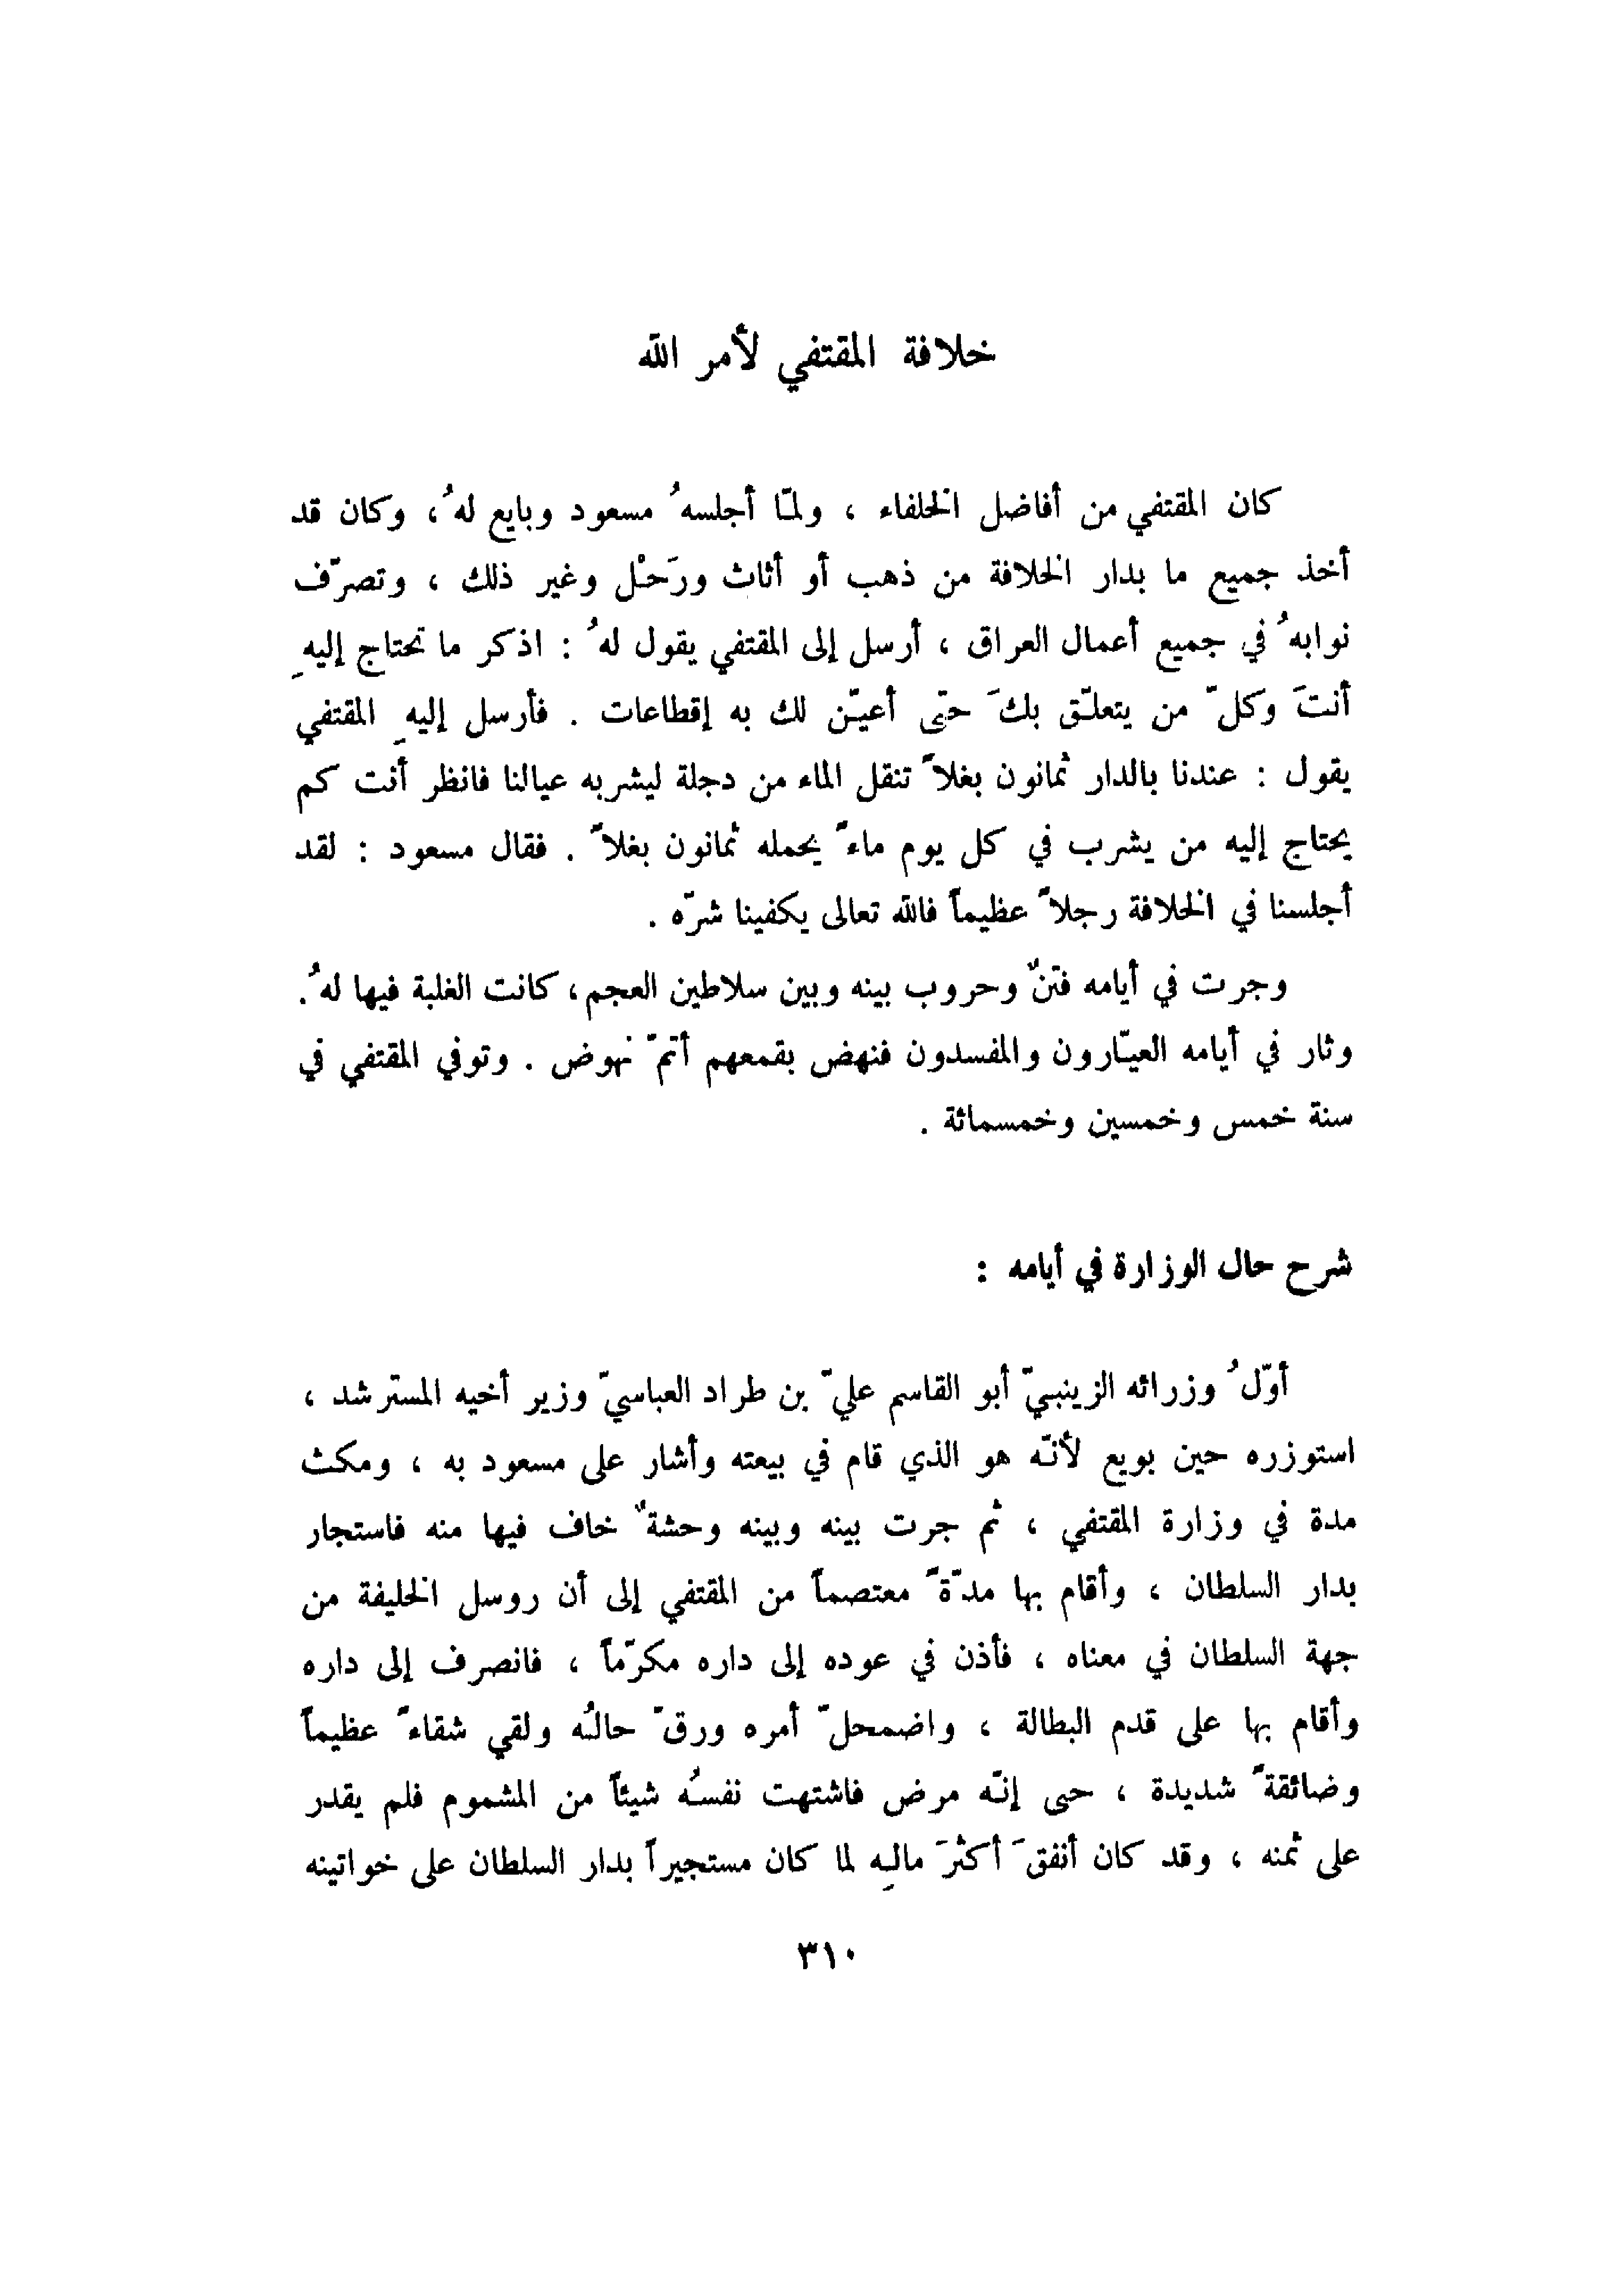 خلافة المقتفي لأمر الله
كان المقتفي من أفاضل الخلفاء ، ولمّا أجلسهُ مسعود وبايع لهُ، وكان قد
أخذ جميع ما بدار الخلافة من ذهب أو أثاث ورَحْل وغير ذلك ، وتصرّف
نوابهُ في جميع أعمال العراق ، أرسل إلى المقتفي يقول لهُ : اذكر ما تحتاج إليهِ
أنتَ وكلّ من يتعلّق بكَ حتى أعيّن لك به إقطاعات . فأرسل إليهِ المقتفي
يقول : عندنا بالدار ثمانون بغلاً تنقل الماء من دجلة ليشربه عيالنا فانظر أنت كم
يحتاج إليه من يشرب في كل يوم ماءً يحمله ثمانون بغلاً . فقال مسعود : لقد
أجلسنا في الخلافة رجلاً عظيماً فالله تعالى يكفينا شرّه .
وجرت في أيامه فتنٌ وحروب بينه وبين سلاطين العجم، كانت الغلبة فيها لهُ.
وثار في أيامه العيّارون والمفسدون فنهض بقمعهم أتمّ نهوض . وتوفي المقتفي في
سنة خمس وخمسين وخمسمائة .
شرح حال الوزارة في أيامه :
أوّلُ وزرائه الزينبيّ أبو القاسم عليّ بن طراد العباسيّ وزير أخيه المسترشد ،
استوزره حين بويع لأنّه هو الذي قام في بيعته وأشار على مسعود به ، ومكث
مدة في وزارة المقتفي ، ثم جرت بينه وبينه وحشةٌ خاف فيها منه فاستجار
بدار السلطان ، وأقام بها مدّةً معتصماً من المقتفي إلى أن روسل الخليفة من
جهة السلطان في معناه ، فأذن في عوده إلى داره مكرّماً ، فانصرف إلى داره
وأقام بها على قدم البطالة ، واضمحلّ أمره ورقّ حالُه ولقي شقاءً عظيماً
وضائقةً شديدة ، حتى إنّه مرض فاشتهت نفسُه شيئاً من المشموم فلم يقدر
على ثمنه ، وقد كان أنفقَ أكثرَ مالِه لما كان مستجيراً بدار السلطان على خواتينه
٣١٠